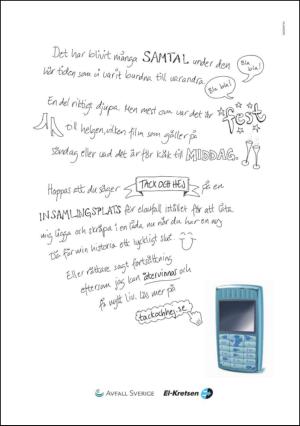 Det har blivit många SAMTAL under den
Bla bla!
Bla bla!
här tiden som vi varit burdna till varandra.
En del riktigt djupa. Men mest om var det är fest
till helgen, vilken film som gäller på
söndag eller vad det är för käk till MIDDAG.
Hoppas att du säger TACK OCH HEJ på en
INSAMLINGSPLATS för elavfall istället för att låta
mig ligga och skräpa i en låda nu när du har en ny.
Då får min historia ett lyckligt slut
Eller rättare sagt fortsättning
eftersom jag kan återvinnas och
få nytt liv. Läs mer på
tackochhej.se
AVFALL SVERIGE
El-Kretsen